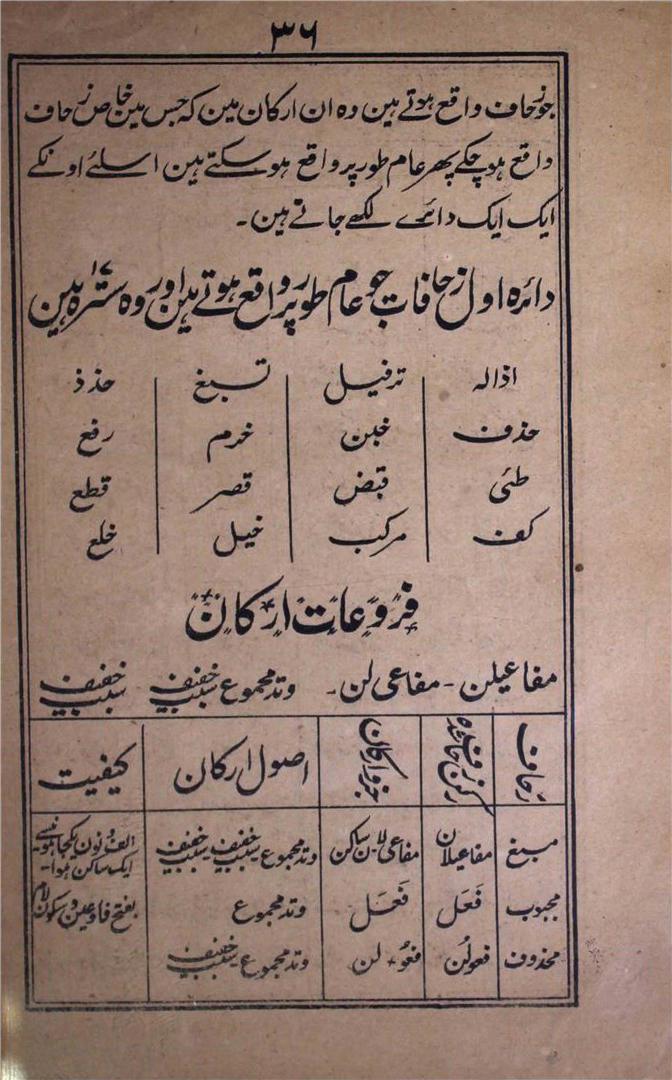 ۳۶
جو زحاف واقع ہوتے ہین وہ ان ارکان مین کہ جس مین خاص زحاف
واقع ہو چکے پھر عام طور پر واقع ہو سکتے ہین اسلئے اونکے
ایک ایک دائرے لکھے جاتے ہین۔
دائرہ اول زحافات جو عام طور پر واقع ہوتے ہین اور وہ سترہ ۱۷ ہین
اذالہ ترفیل تسبغ حذذ
حذف خبن خرم رفع
طئی قبض قصر قطع
کف مرکب خیل خلع
فروعات ارکان
مفاعیلن - مفاعی لن۔ وتد مجموع سبب خفیف سبب خفیف
زحاف رکن مزحفہ جزو ارکان اصول ارکان کیفیت
مسبغ مفاعیلان مفاعی لا۔ن ساکن وتد مجموع۔ سبب خفیف۔ سبب خفیف الف و نون یکجا ہونیسے ایک ساکن ہوا۔
مجبوب فَعَل فَعَل وتد مجموع بفتح فا و عین و سکون لام
محذوف فعولُن فعو۔ لن وتد مجموع۔ سبب خفیف